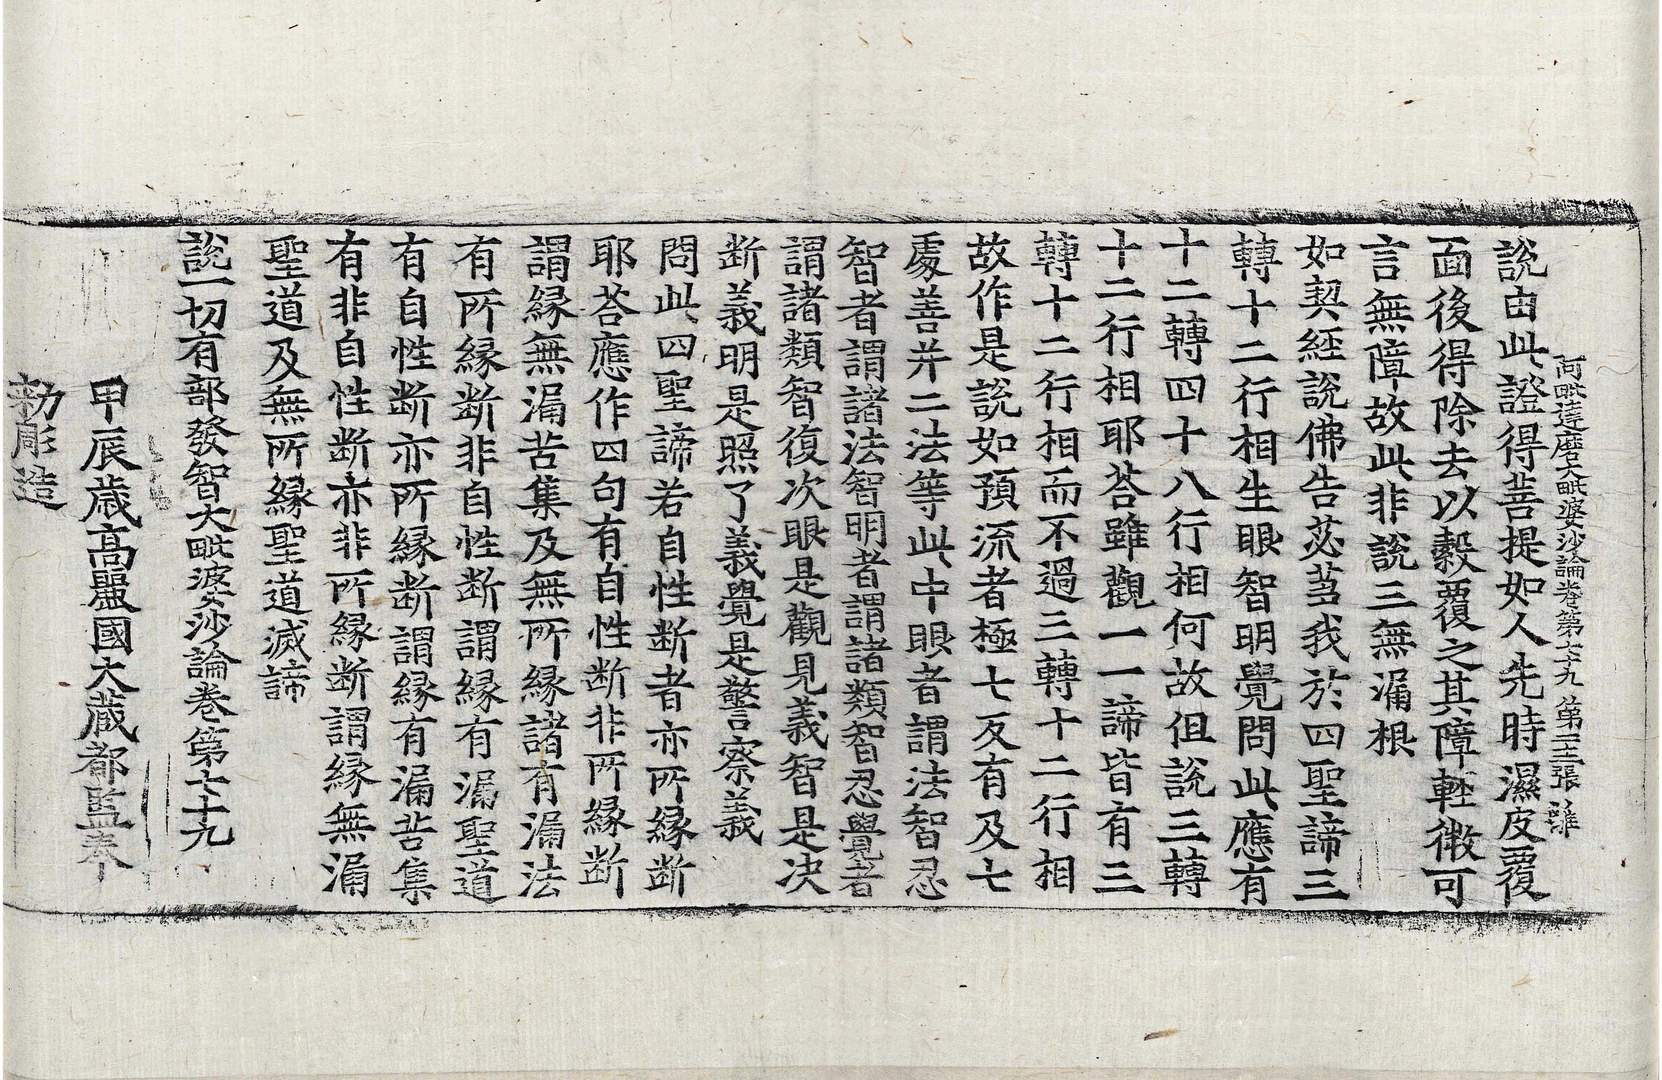 說由此證得菩提如人先時濕皮覆
阿毗達磨大毗婆沙論卷第七十九 第二十三張 雖
面後得除去以縠覆之其障輕微可
言無障故此非說三無漏根
如契經說佛告苾芻我於四聖諦三
轉十二行相生眼智明覺問此應有
十二轉四十八行相何故但說三轉
十二行相耶荅雖觀一一諦皆有三
轉十二行相而不過三轉十二行相
故作是說如預流者極七反有及七
處善并二法等此中眼者謂法智忍
智者謂諸法智明者謂諸類智忍覺者
謂諸類智復次眼是觀見義智是决
断義明是照了義覺是警察義
問此四聖諦若自性断者亦所縁断
耶荅應作四句有自性断非所縁断
謂縁無漏苦集及無所縁諸有漏法
有所縁断非自性断謂縁有漏聖道
有自性断亦所縁断謂縁有漏苦集
有非自性断亦非所縁断謂縁無漏
聖道及無所縁聖道滅諦
說一切有部發智大毗婆沙論卷第七十九
甲辰歲高麗國大藏都監奉
勑彫造